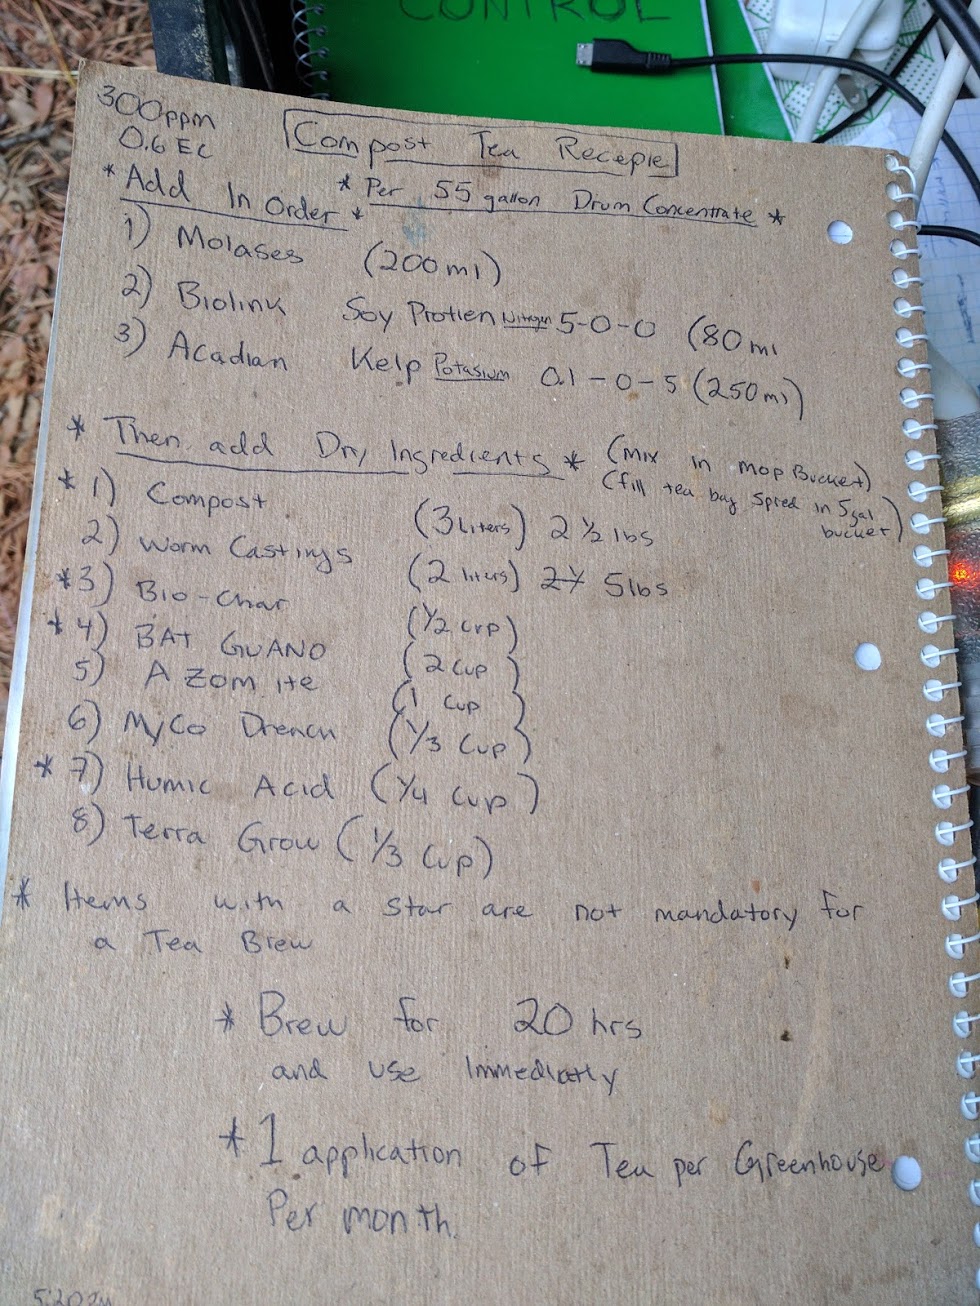 CONTROL
300ppm
0.6 EC
Compost Tea Recepie
* Add In Order *
* Per 55 gallon Drum Concentrate *
1) Molases (200ml)
2) Biolink Soy Protien Nitrogen 5-0-0 (80ml
3) Acadian Kelp Potasium 0.1-0-5 (250ml)
* Then add Dry Ingredients * (mix in mop Bucket)
(fill tea bag Spred in 5gal bucket)
* 1) Compost (3 liters) 2 1/2 lbs
2) Worm Castings (2 liters) 5 lbs
* 3) Bio-Char (1/2 cup)
* 4) BAT GUANO (2 cup)
5) AZomite (1 cup)
6) MyCo Drench (1/3 Cup)
* 7) Humic Acid (1/4 cup)
8) Terra Grow (1/3 Cup)
* Items with a star are not mandatory for
a Tea Brew
* Brew for 20 hrs
and use Immediatly
* 1 application of Tea per Greenhouse
Per month.